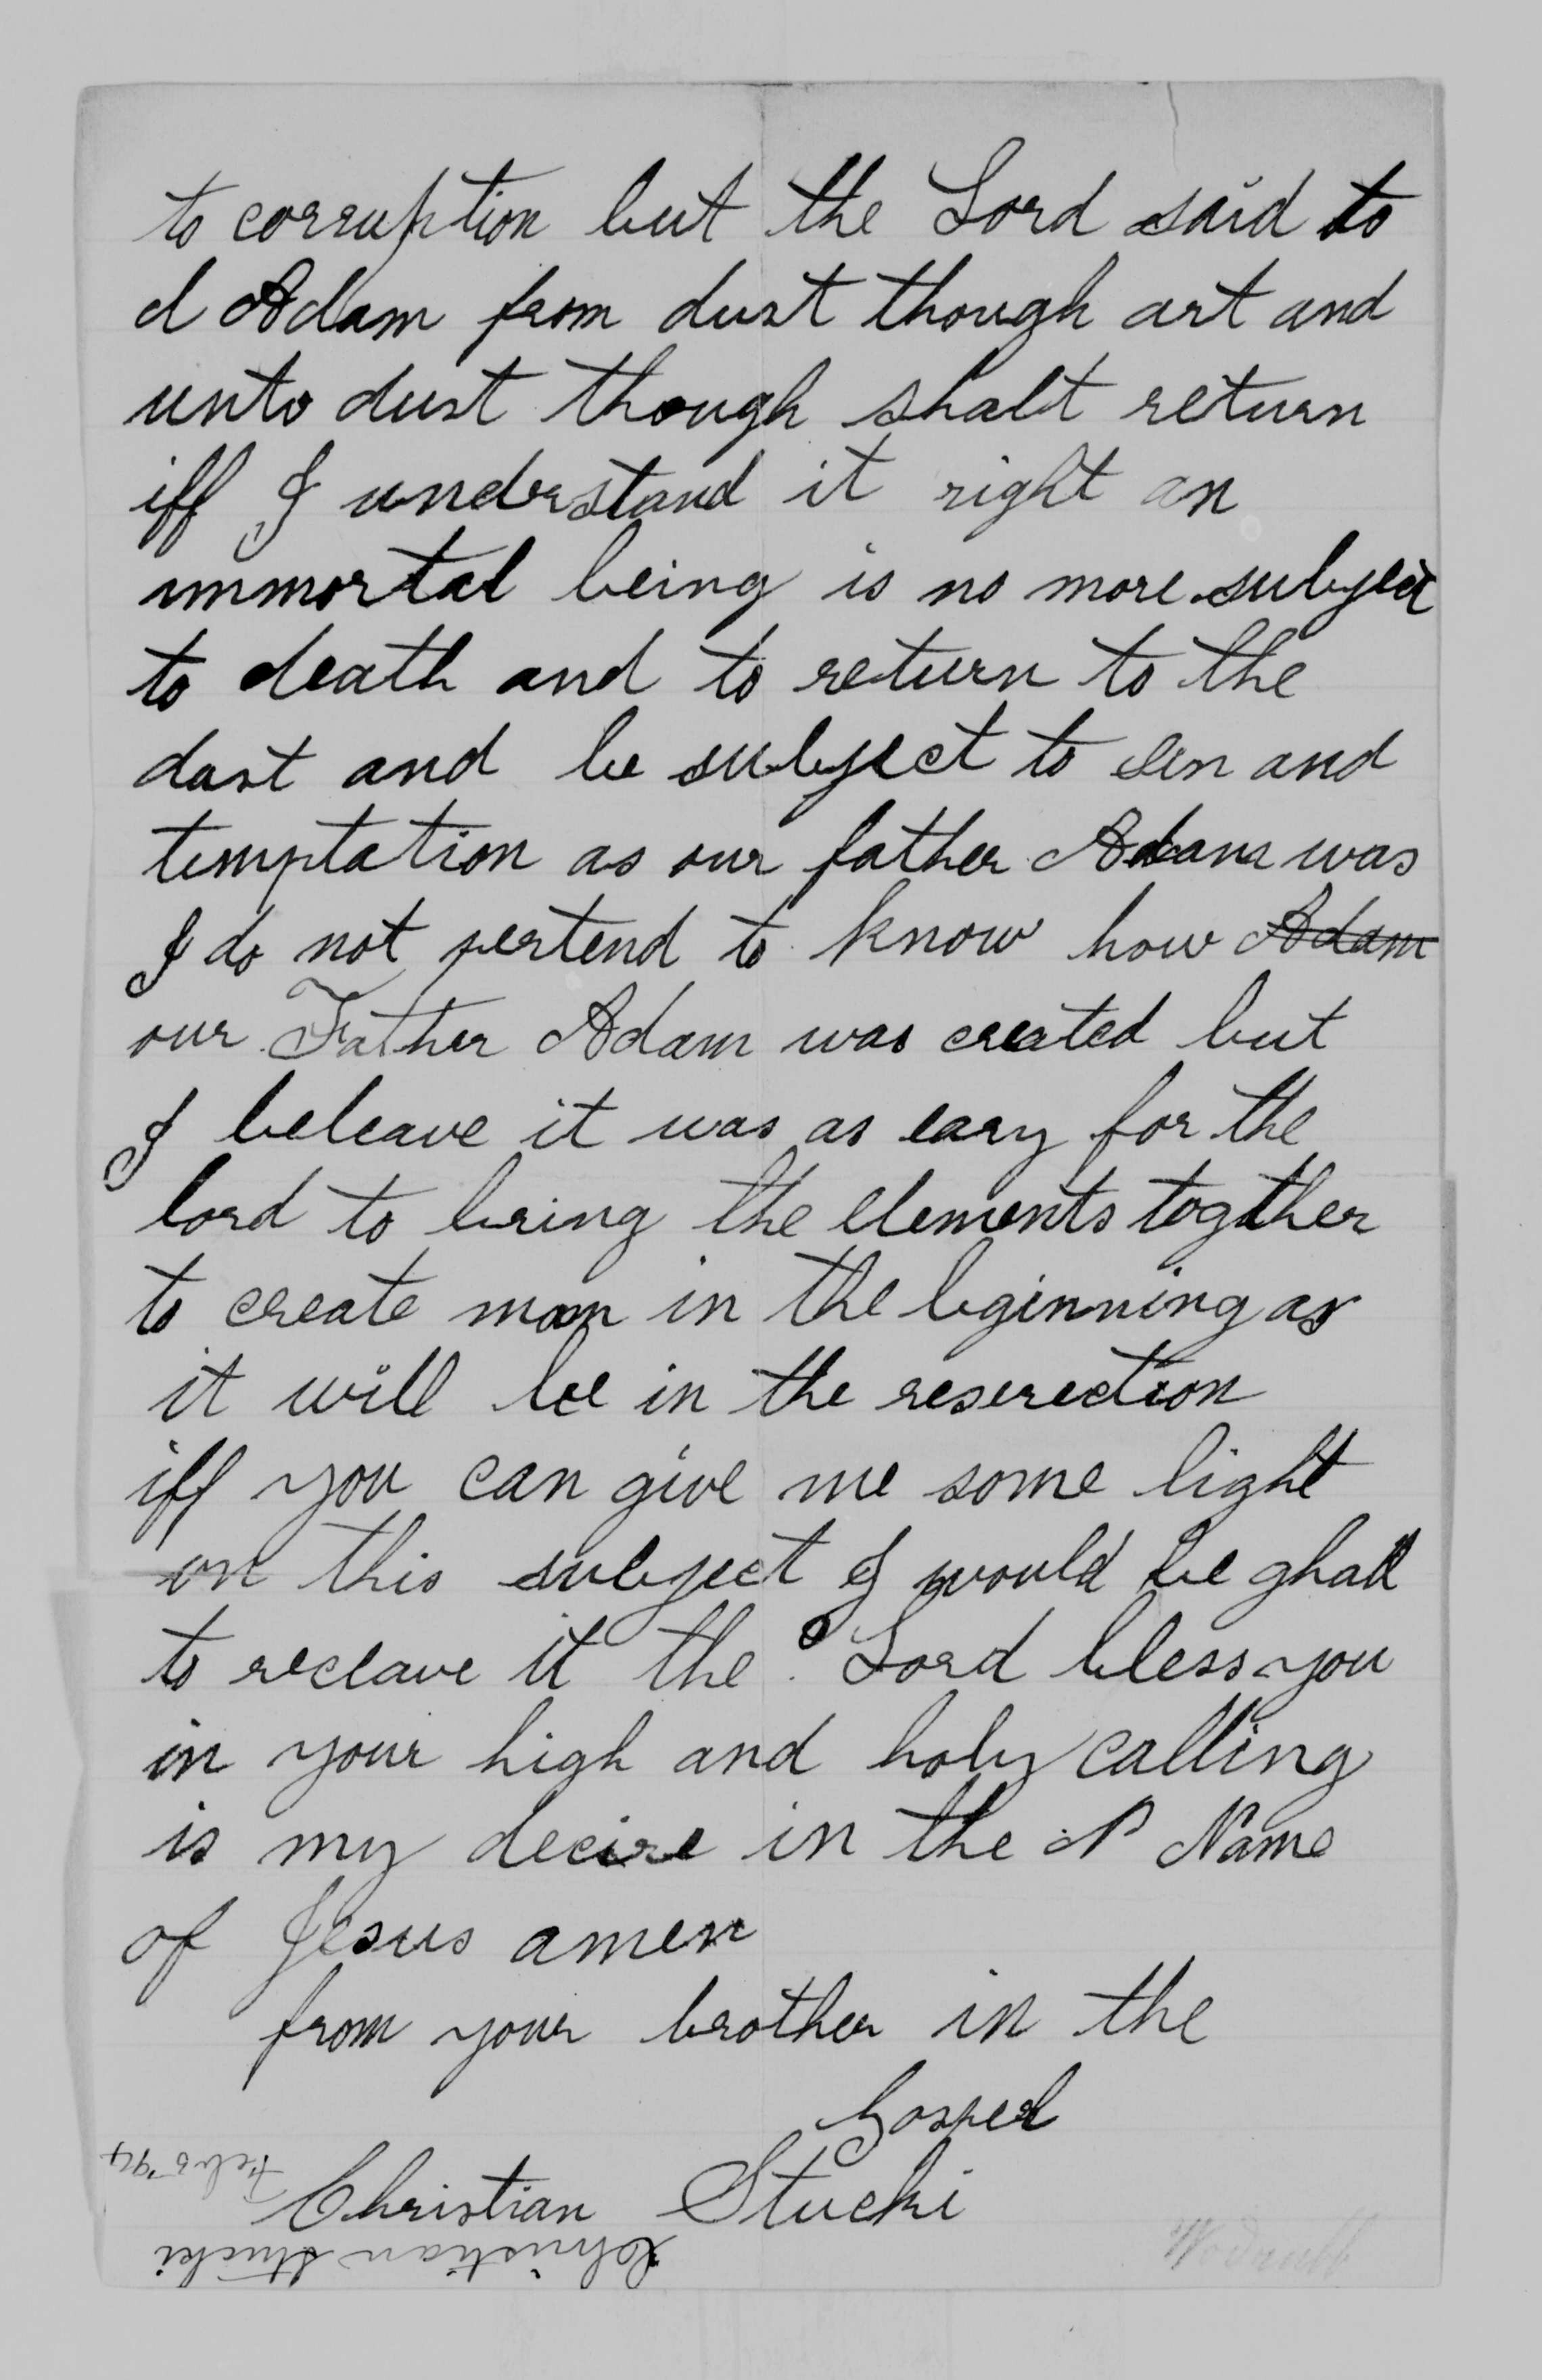 to corruption but the Lord said to
d Adam from dust though art and
unto dust though shalt return
iff I understand it right an
immortal being is no more subject
to death and to return to the
dast and be subject to sin and
temptation as our father Adam was
I do not pertend to know how Adam
our Father Adam was created but
I beleave it was as easy for the
lord to bring the elements togther
to create man in the bginning as
it will be in the reserection
iff you can give me some light
on this subject I would be ghad
to reclave it the Lord bless you
in your high and holy calling
is my decire in the N Name
of Jesus amen
from your brother in the
Gospel
Christian Stucki
Christian Stucki
Feb 5 '94